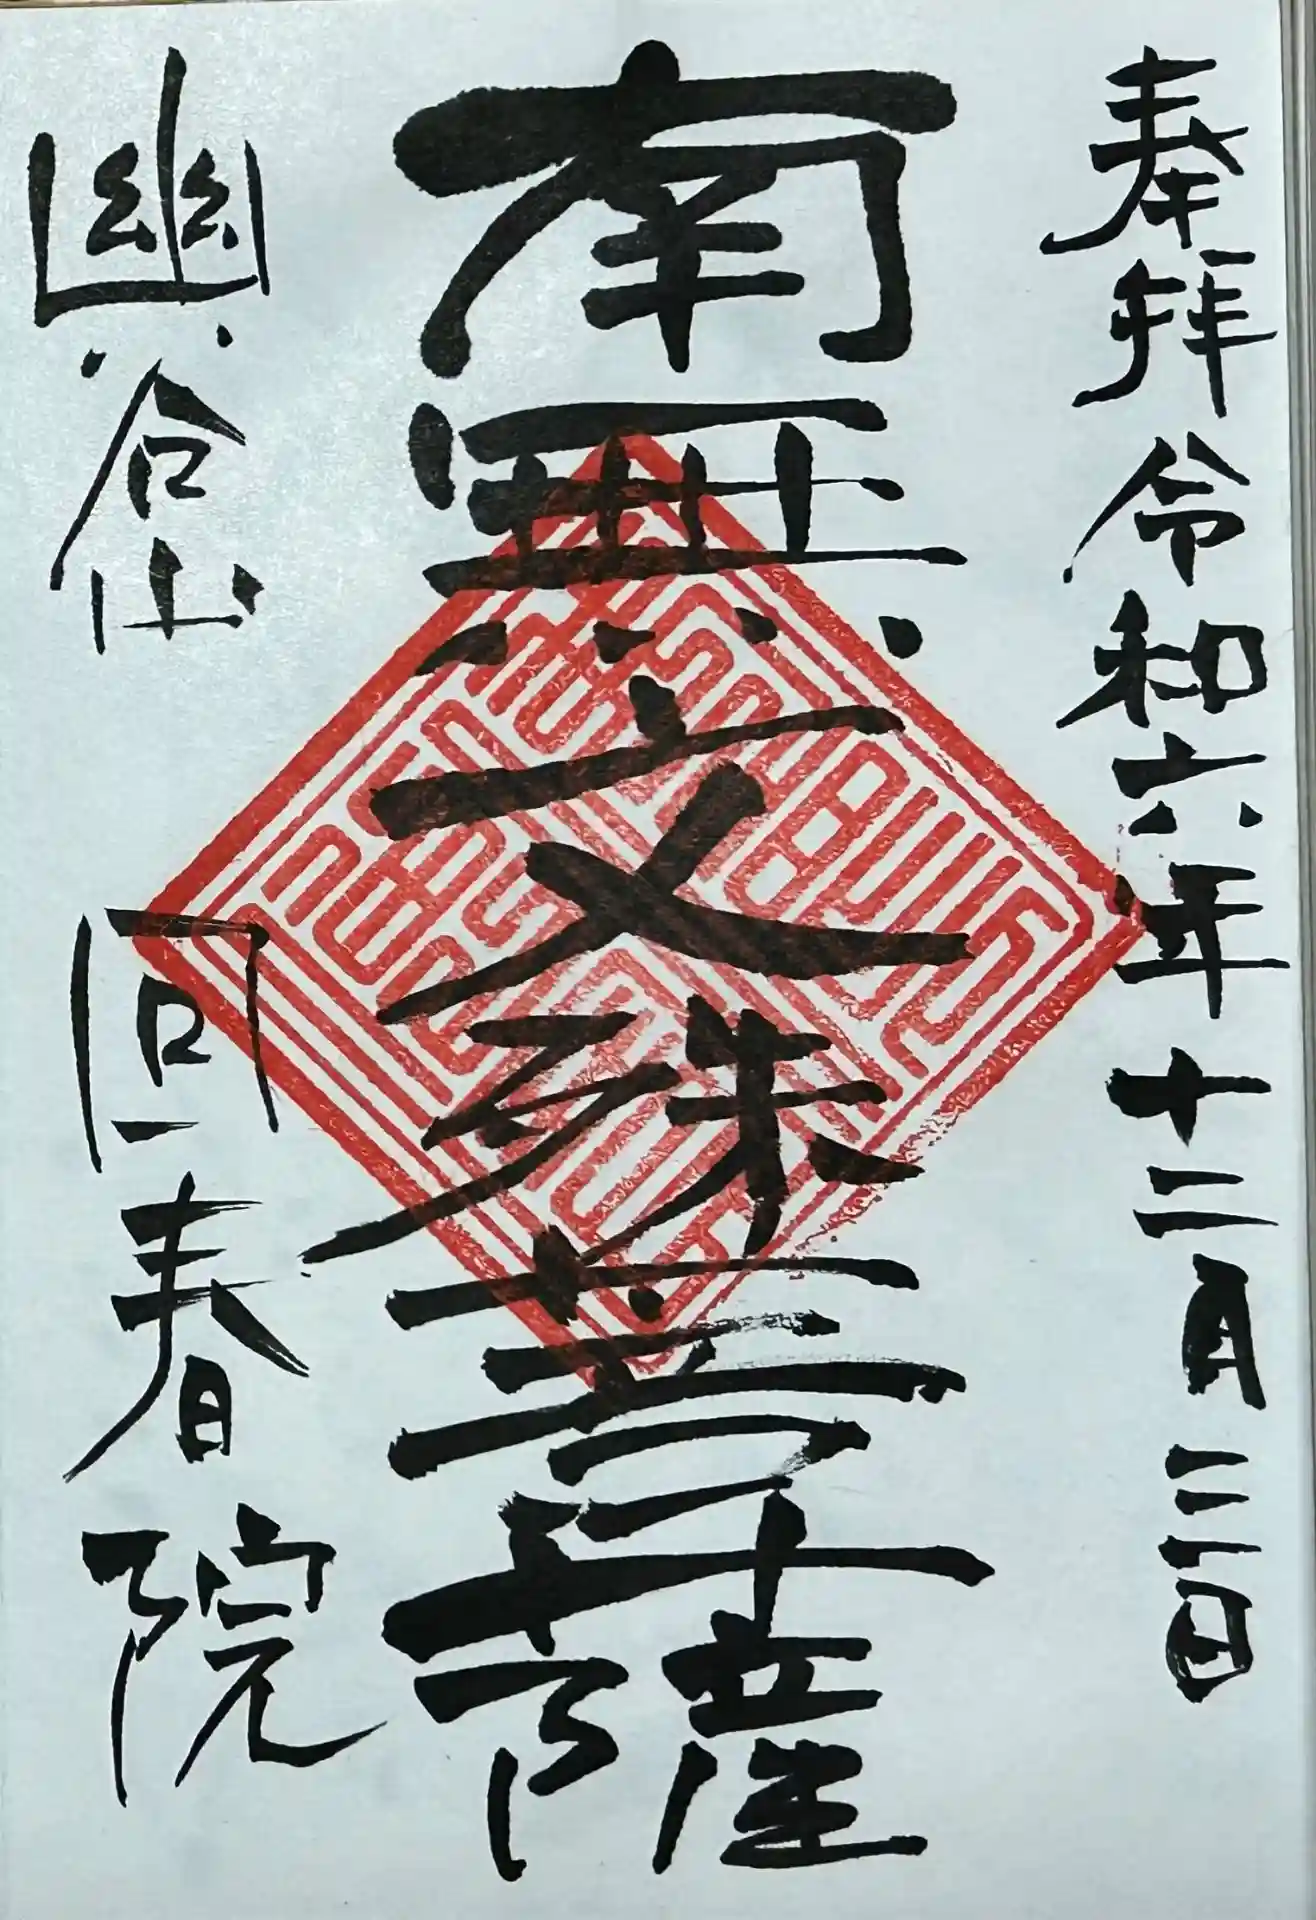 奉拝 令和六年十二月三日
南無文殊菩薩
幽谷山 回春院